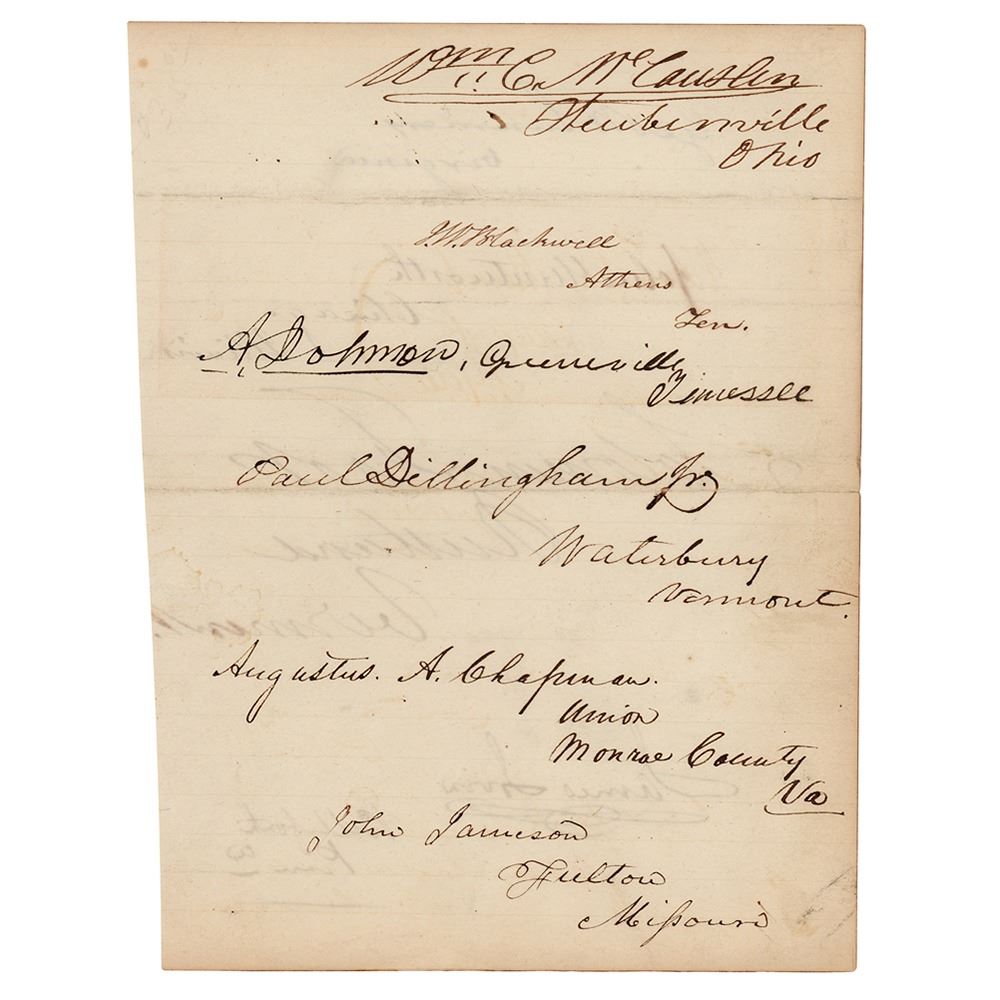 Wm. C. McCauslen
Steubenville
Ohio
J. W. Blackwell
Athens
Ten.
A, Johnson, Greeneville
Tennessee
Paul Dillingham Jr.
Waterbury
Vermont.
Augustus. A. Chapman.
Union
Monroe County
Va
John Jameson
Fulton
Missouri